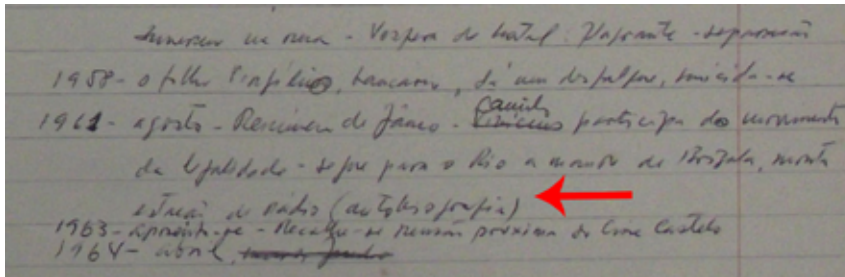 na rua - Véspera de Natal: Flagrante - separação
1958 - o filho Virgílio, bancário, dá um desfalque, suicida-se
1961 - agosto - Renúncia de Jânio - Camilo participa do movimento
da legalidade - segue para o Rio a mando de Brizola, monta
estação de rádio (autobiografia)
1963 - aposenta-se - Recolhe-se pensão próxima do Cine Castelo
1964 - abril,